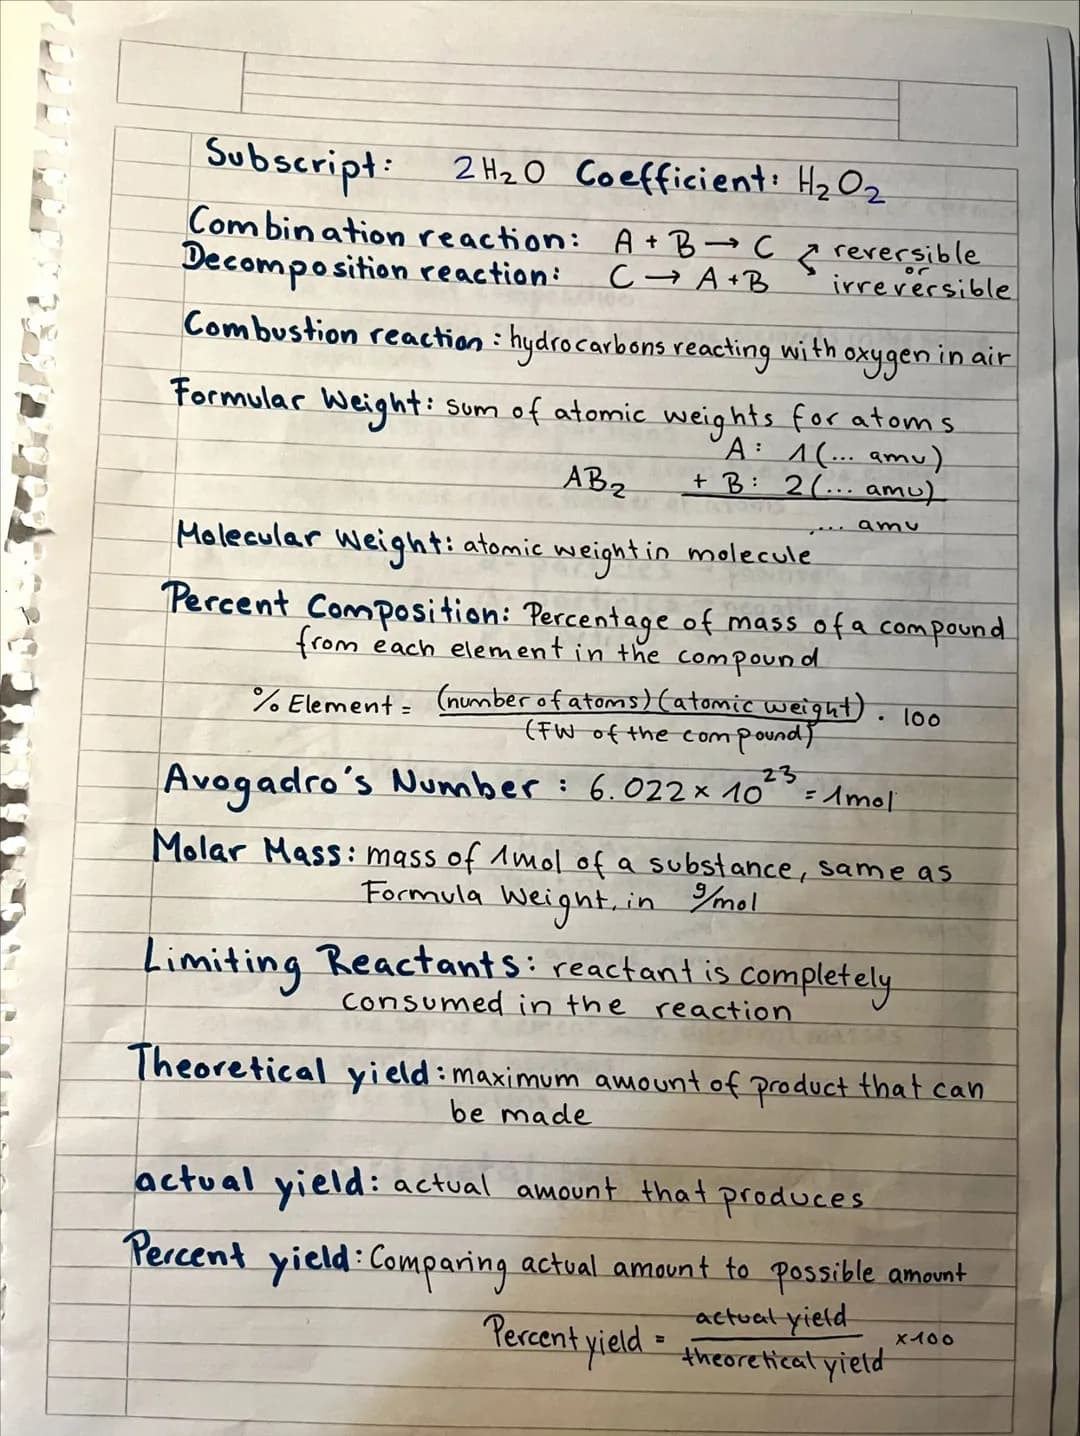 Subscript: 2H₂O Coefficient: H₂O₂
Combination reaction: A + B → C reversible
or
Decomposition reaction: C → A + B irreversible
Combustion reaction: hydrocarbons reacting with oxygen in air
Formular Weight: sum of atomic weights for atoms
A: 1(... amu)
AB₂ + B: 2(... amu)
... amu
Molecular Weight: atomic weight in molecule
Percent Composition: Percentage of mass of a compound
from each element in the compound
% Element = (number of atoms)(atomic weight) · 100
(FW of the compound)
Avogadro's Number: 6.022 × 10²³ = 1mol
Molar Mass: mass of 1mol of a substance, same as
Formula Weight, in g/mol
Limiting Reactants: reactant is completely
consumed in the reaction
Theoretical yield: maximum amount of product that can
be made
actual yield: actual amount that produces
Percent yield: Comparing actual amount to possible amount
Percent yield = actual yield ×100
theoretical yield